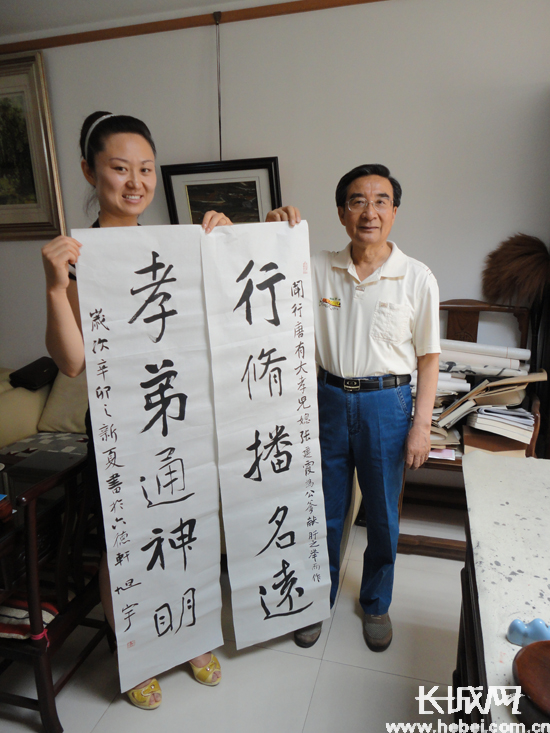 聞行唐有大孝兒媳张建霞为公爹献肝之举而作
行脩播名遠
孝弟通神明
歲次辛卯之新夏書於六德軒 旭宇
长城网
www.hebei.com.cn